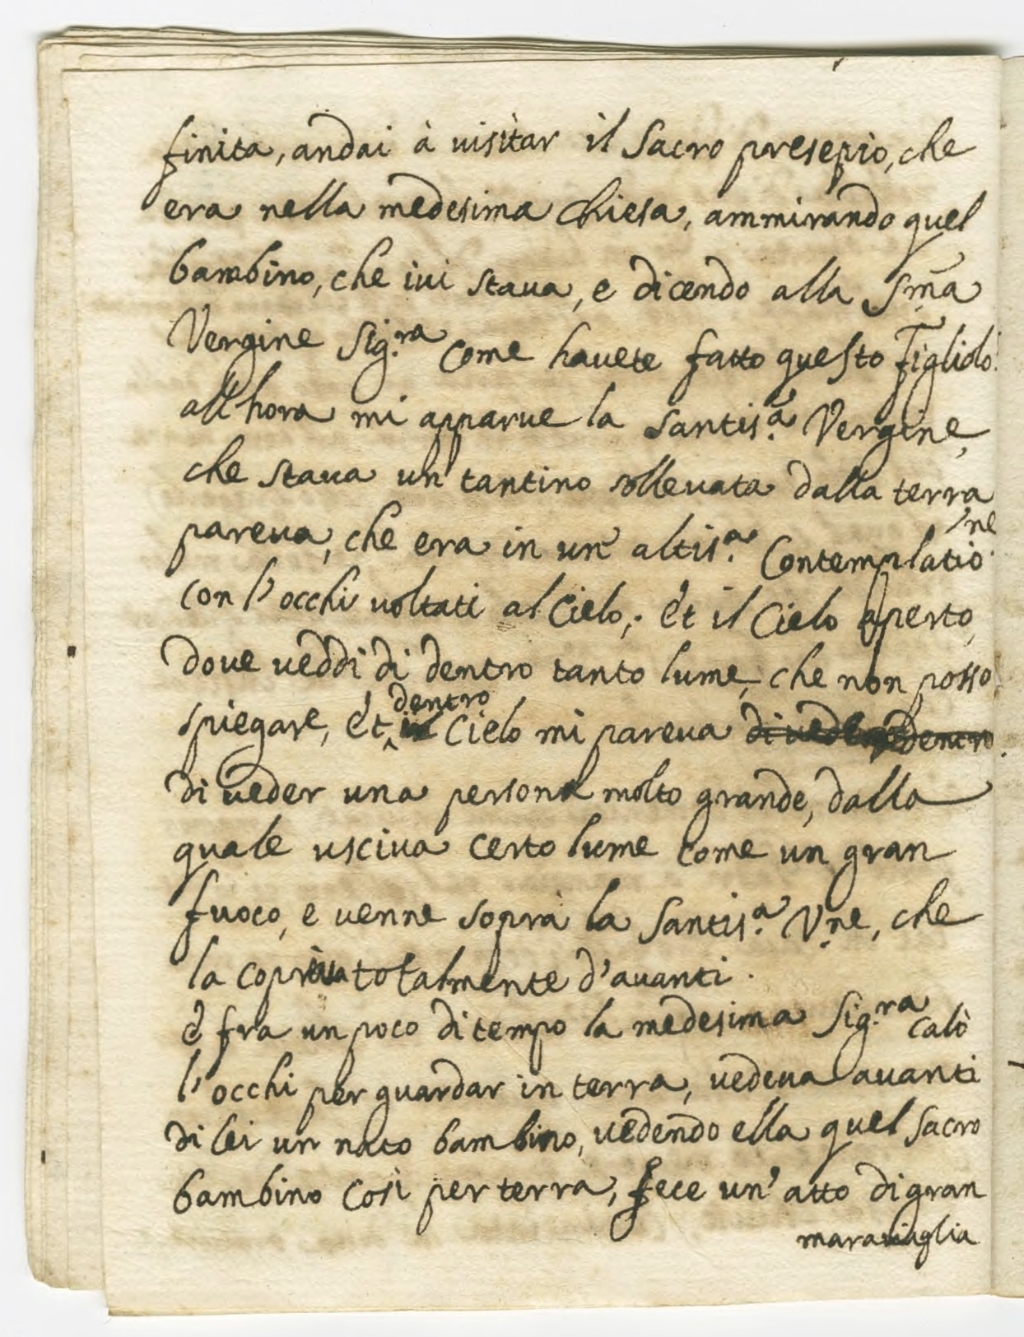 finita, andai à uisitar il Sacro presepio, che
era nella medesima Chiesa, ammirando quel
bambino, che iui staua, e dicendo alla Sma
Vergine Sig.ra Come hauete fatto questo Figliolo:
all'hora mi apparue la Santis.a Vergine,
che staua un tantino solleuata dalla terra
pareua, che era in un' altis.a Contemplatio.ne
con l'occhi uoltati al Cielo; ét il Cielo aperto,
doue ueddi di dentro tanto lume, che non posso
spiegare, ét dentro Cielo mi pareua di ueder dentro
di ueder una persona molto grande, dalla
quale usciua certo lume come un gran
fuoco, e uenne soprà la Santis.a V.ne, che
la copriua totalmente d'auanti.
è fra un poco di tempo la medesima Sig.ra calò
l'occhi per guardar in terra, uedeua auanti
di lei un nato bambino, uedendo ella quel Sacro
bambino Così per terra, fece un' atto di gran
marauiglia